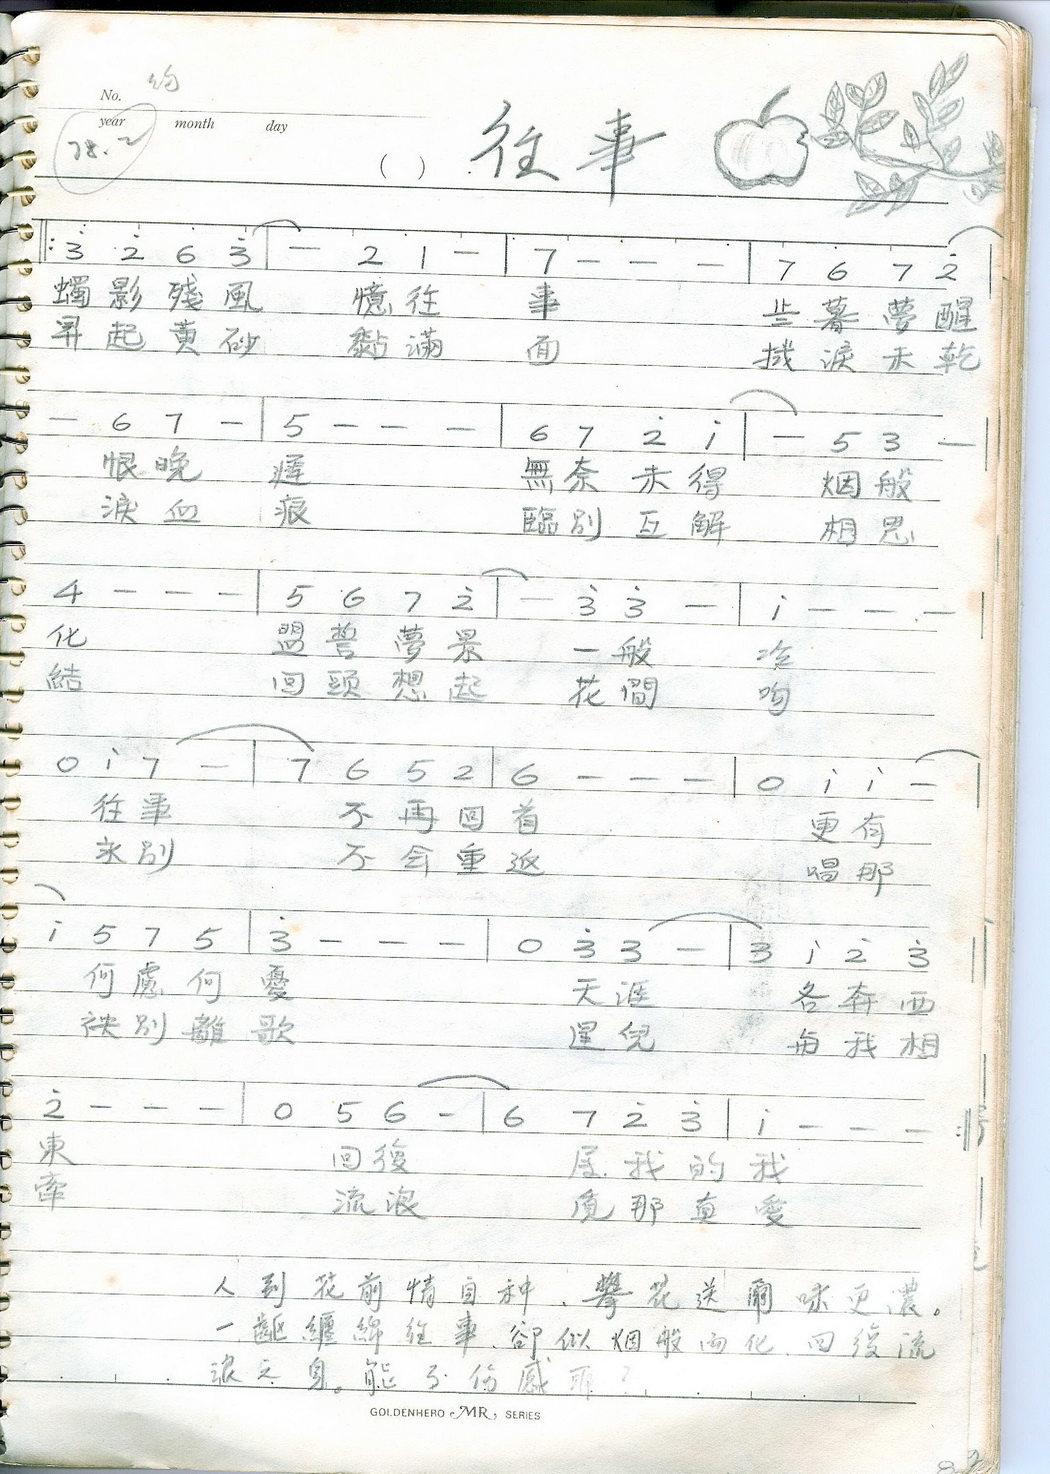 No. 約
year month day
78.2
( ) 往事
‖: 3 2̇ 6 3̇ | — 2 1 — | 7 — — — | 7 6 7 2̇ |
蠋影殘風 憶往 事 些暮夢醒
昇起黄砂 黏滿 面 淚未乾
— 6 7 — | 5 — — — | 6 7 2̇ i̇ | — 5 3 —
恨晚 遲 無奈未得 烟般
淚血 痕 臨別互解 相思
4 — — — | 5 6 7 2̇ | — 3̇ 3̇ — | i̇ — — —
化 盟誓夢景 一般 冷
結 回頭想起 花間
0 i̇ 7 — | 7 6 5 2 | 6 — — — | 0 i̇ i̇ — |
往事 不再回首 更有
永別 不会重返 唱那
i̇ 5 7 5 | 3̇ — — — | 0 3̇ 3 — | 3 i̇ 2̇ 3̇
何處何憂 天涯 各奔西
袂別離歌 星兒 与我相
2̇ — — — | 0 5 6 — | 6 7 2̇ 3̇ | i̇ — — — :‖
東 回復 我的我
牽 流浪 覓那真愛
人到花前情自种、攀花送爾味更濃。
一齣纏綿往事、卻似烟般而化、回復流
浪之身。能不伤感耶?
GOLDENHERO MR, SERIES